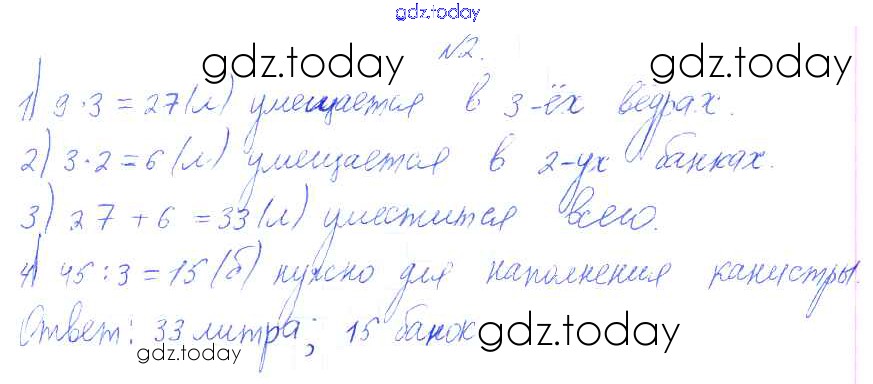 gdz.today
gdz.today №2. gdz.today
1) 9·3=27(л) умещается в 3-ёх вёдрах.
2) 3·2=6(л) умещается в 2-ух банках.
3) 27+6=33(л) уместится всего.
4) 45:3=15(б) нужно для наполнения канистры.
Ответ: 33 литра; 15 банок
gdz.today gdz.today